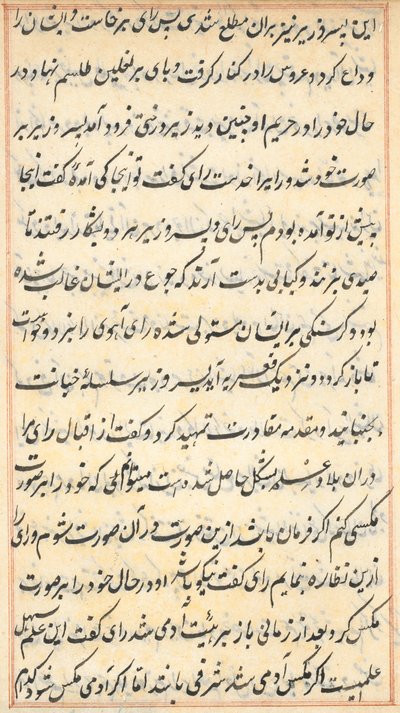 این پسر وزیر نیز بران مطلع شدی پس رای برخاست و ایشان را
وداع کرد و عروس را در کنار گرفت و پای بر نعلین طلسم نهاد در
حال خود را در حریم او جنین دید زیر درختی فرود آمد پسر وزیر بر
صورت خود شد و رای را خدمت رای گفت تو اینجا کی آمدهٔ گفت اینجا
پیش از تو آمده بودم پس رای و پسر وزیر هر دو بشکار رفتند تا
صیدی بزنند و کبابی بدست آرند که جوع در ایشان غالب شده
بود و گرسنگی بر ایشان مستولی شده رای آهوی را بزد و خواست
تا باز گردد و نزدیک آید پسر وزیر سلسلهٔ خیانت
بجنبانید و مقدمه مقادرت تمهید کرد و گفت از اقبال رای مرا
دران بلاد علم مشکل حاصل شده است میتوانم که خود را بر صورت
مکسی کنم اگر فرمان باشد ازین صورت در آن صورت شوم و رای را
ازین نظاره نمایم رای گفت نیکو باشد او در حال خود را بر صورت
مکس کرد و بعد از زمانی باز بر هیئت آدمی شد رای گفت این علم سهل
علمیست اگر مکس آدمی شد شرفی یابند اما اگر آدمی مکس شود کدام